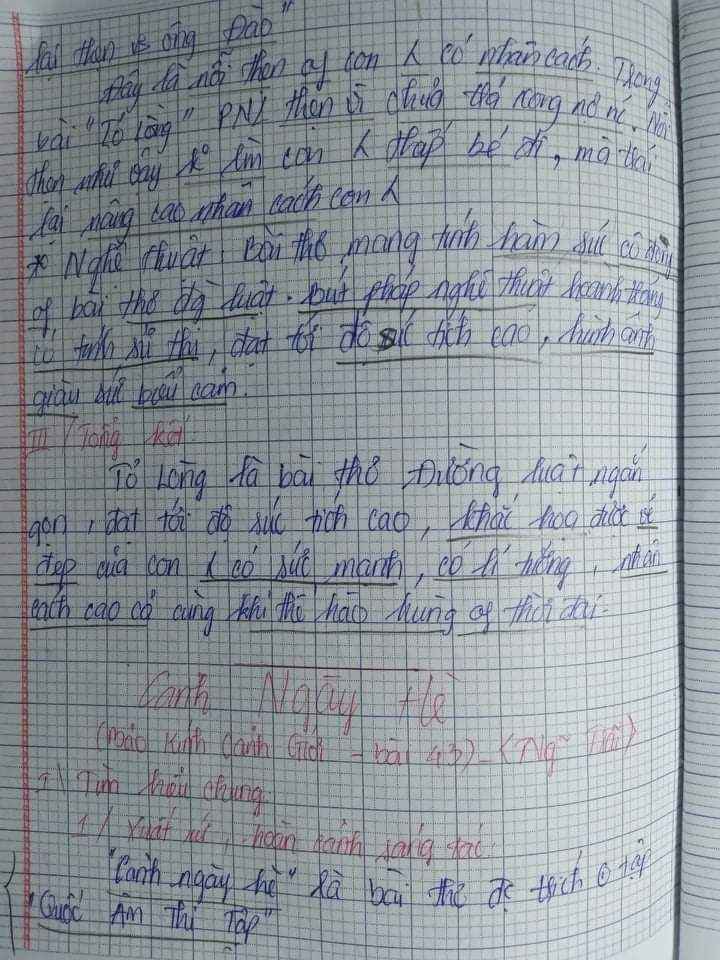 lại thẹn vs ông Đào"
Đây là nỗi thẹn of con λ có nhân cách. Trong
bài "Tỏ lòng" PNL thẹn vì chưa trả xong nợ nc. Nỗi
thẹn như vậy k° làm con λ thấp bé đi, mà trái
lại nâng cao nhân cách con λ
* Nghệ thuật: bài thơ mang tính hàm súc cô đọng
of bài thơ đg luật. bút pháp nghệ thuật hoành tráng
có tính sử thi, đạt tới độ súc tích cao, hình ảnh
giàu sức biểu cảm.
III / Tổng kết
Tỏ Lòng là bài thơ Đường luật ngắn
gọn, đạt tới độ súc tích cao, khắc họa được vẻ
đẹp của con λ có sức mạnh, có lí tưởng, nhân
cách cao cả cùng khí thế hào hùng of thời đại.
Cảnh Ngày Hè
(Bảo Kính Cảnh Giới - bài 43) - (Ng~ Trãi)
I \ Tìm hiểu chung
1 / Xuất xứ, hoàn cảnh sáng tác.
"Cảnh ngày hè" là bài thơ đc trích ở tập
"Quốc Âm Thi Tập"